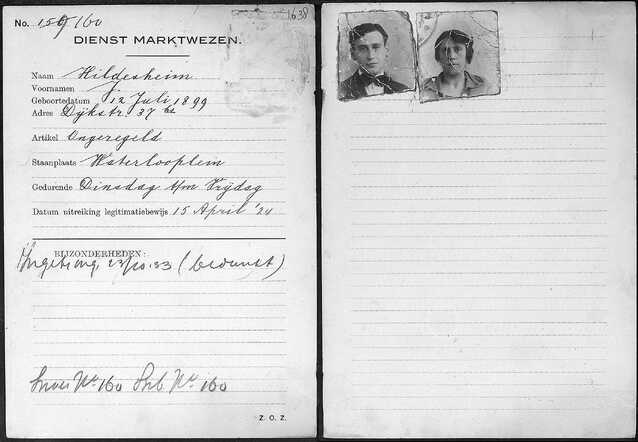 No. 159/160
1638
DIENST MARKTWEZEN.
Naam Hildesheim
Voornamen J.
Geboortedatum 12 Juli 1899
Adres Dijkstr. 37 hs
Artikel Ongeregeld
Staanplaats Waterlooplein
Gedurende Dinsdag t/m Vrijdag
Datum uitreiking legitimatiebewijs 15 April '24
BIJZONDERHEDEN:
23/10.33
No. 160 No. 160
Z. O. Z.